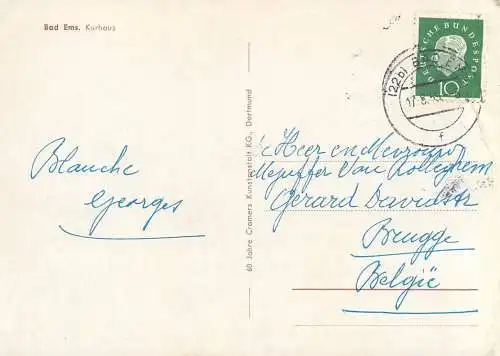 Bad Ems. Kurhaus
Blanche
Georges
60 Jahre Cramers Kunstanstalt KG., Dortmund
DEUTSCHE BUNDESPOST
10
(22b) BAD EMS
17.8.
f
Heer en Mevrouw
Mejuffer Van
Gérard Davidstr
Brugge
België